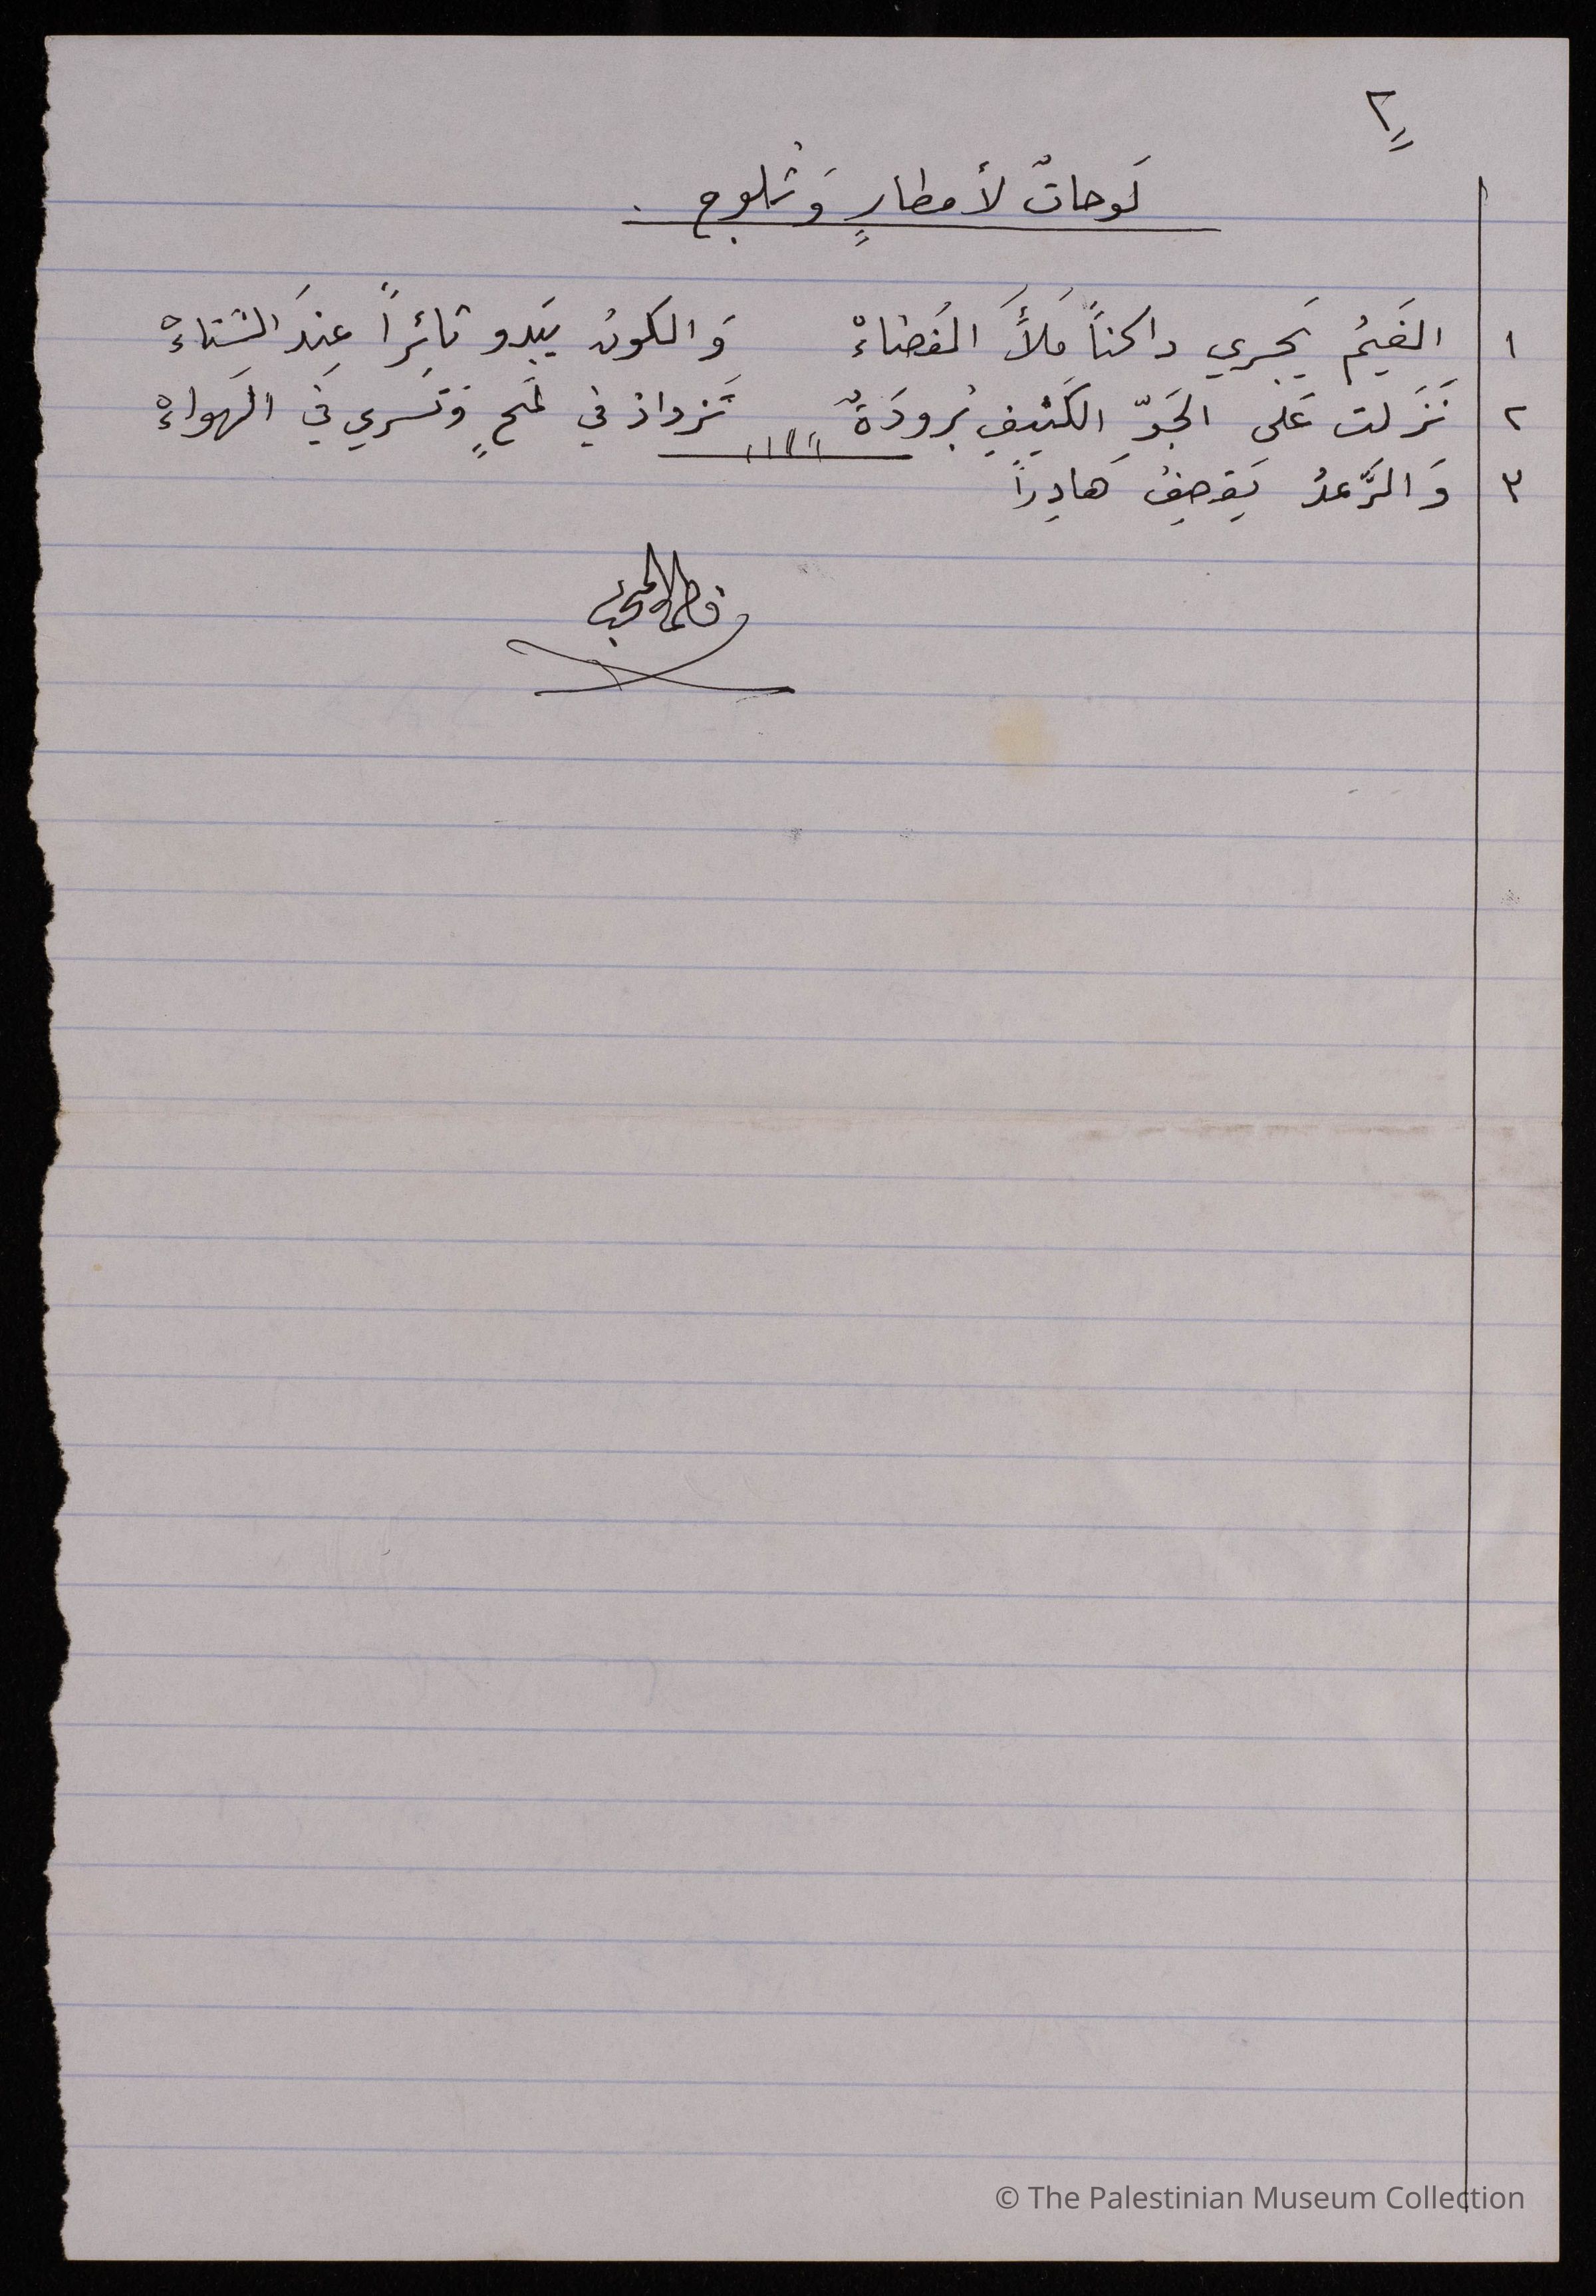 ٢
لَوحاتٌ لأمطارٍ وَثُلوج .
١ الغَيمُ يَجري داكناً مَلأَ الفَضاءْ وَالكونُ يَبدو ثائِراً عِندَ الشتاءْ
٢ نَزَلت عَلى الجَوِّ الكَثيفِ بُرودَةٌ تَزدادُ في لَمحٍ وَتَسري في الهَواءْ
٣ وَالرَّعدُ يَقصِفُ هَادِراً
© The Palestinian Museum Collection